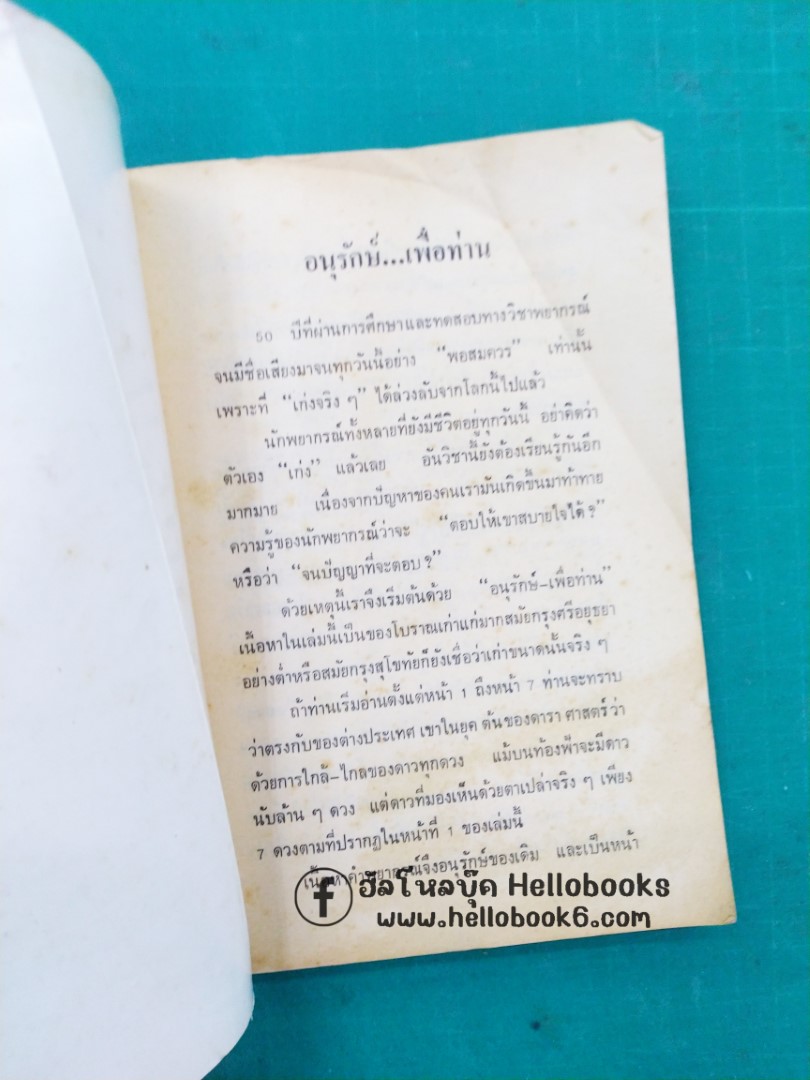 อนุรักษ์...เพื่อท่าน
50 ปีที่ผ่านการศึกษาและทดสอบทางวิชาพยากรณ์
จนมีชื่อเสียงมาจนทุกวันนี้อย่าง “พอสมควร” เท่านั้น
เพราะที่ “เก่งจริง ๆ” ได้ล่วงลับจากโลกนี้ไปแล้ว
นักพยากรณ์ทั้งหลายที่ยังมีชีวิตอยู่ทุกวันนี้ อย่าคิดว่า
ตัวเอง “เก่ง” แล้วเลย อันวิชานี้ยังต้องเรียนรู้กันอีก
มากมาย เนื่องจากปัญหาของคนเรามันเกิดขึ้นมาท้าทาย
ความรู้ของนักพยากรณ์ว่าจะ “ตอบให้เขาสบายใจได้?”
หรือว่า “จนปัญญาที่จะตอบ?”
ด้วยเหตุนี้เราจึงเริ่มต้นด้วย “อนุรักษ์-เพื่อท่าน”
เนื้อหาในเล่มนี้เป็นของโบราณเก่าแก่มากสมัยกรุงศรีอยุธยา
อย่างต่ำหรือสมัยกรุงสุโขทัยก็ยังเชื่อว่าเก่าขนาดนั้นจริง ๆ
ถ้าท่านเริ่มอ่านตั้งแต่หน้า 1 ถึงหน้า 7 ท่านจะทราบ
ว่าตรงกับของต่างประเทศ เขาในยุค ต้นของดารา ศาสตร์ ว่า
ด้วยการใกล้-ไกลของดาวทุกดวง แม้บนท้องฟ้าจะมีดาว
นับล้าน ๆ ดวง แต่ดาวที่มองเห็นด้วยตาเปล่าจริง ๆ เพียง
7 ดวงตามที่ปรากฏในหน้าที่ 1 ของเล่มนี้
เนื้อหาคำพยากรณ์จึงอนุรักษ์ของเดิม และเป็นหน้า
f ฮัลโหลบุ๊ค Hellobooks
www.hellobook6.com